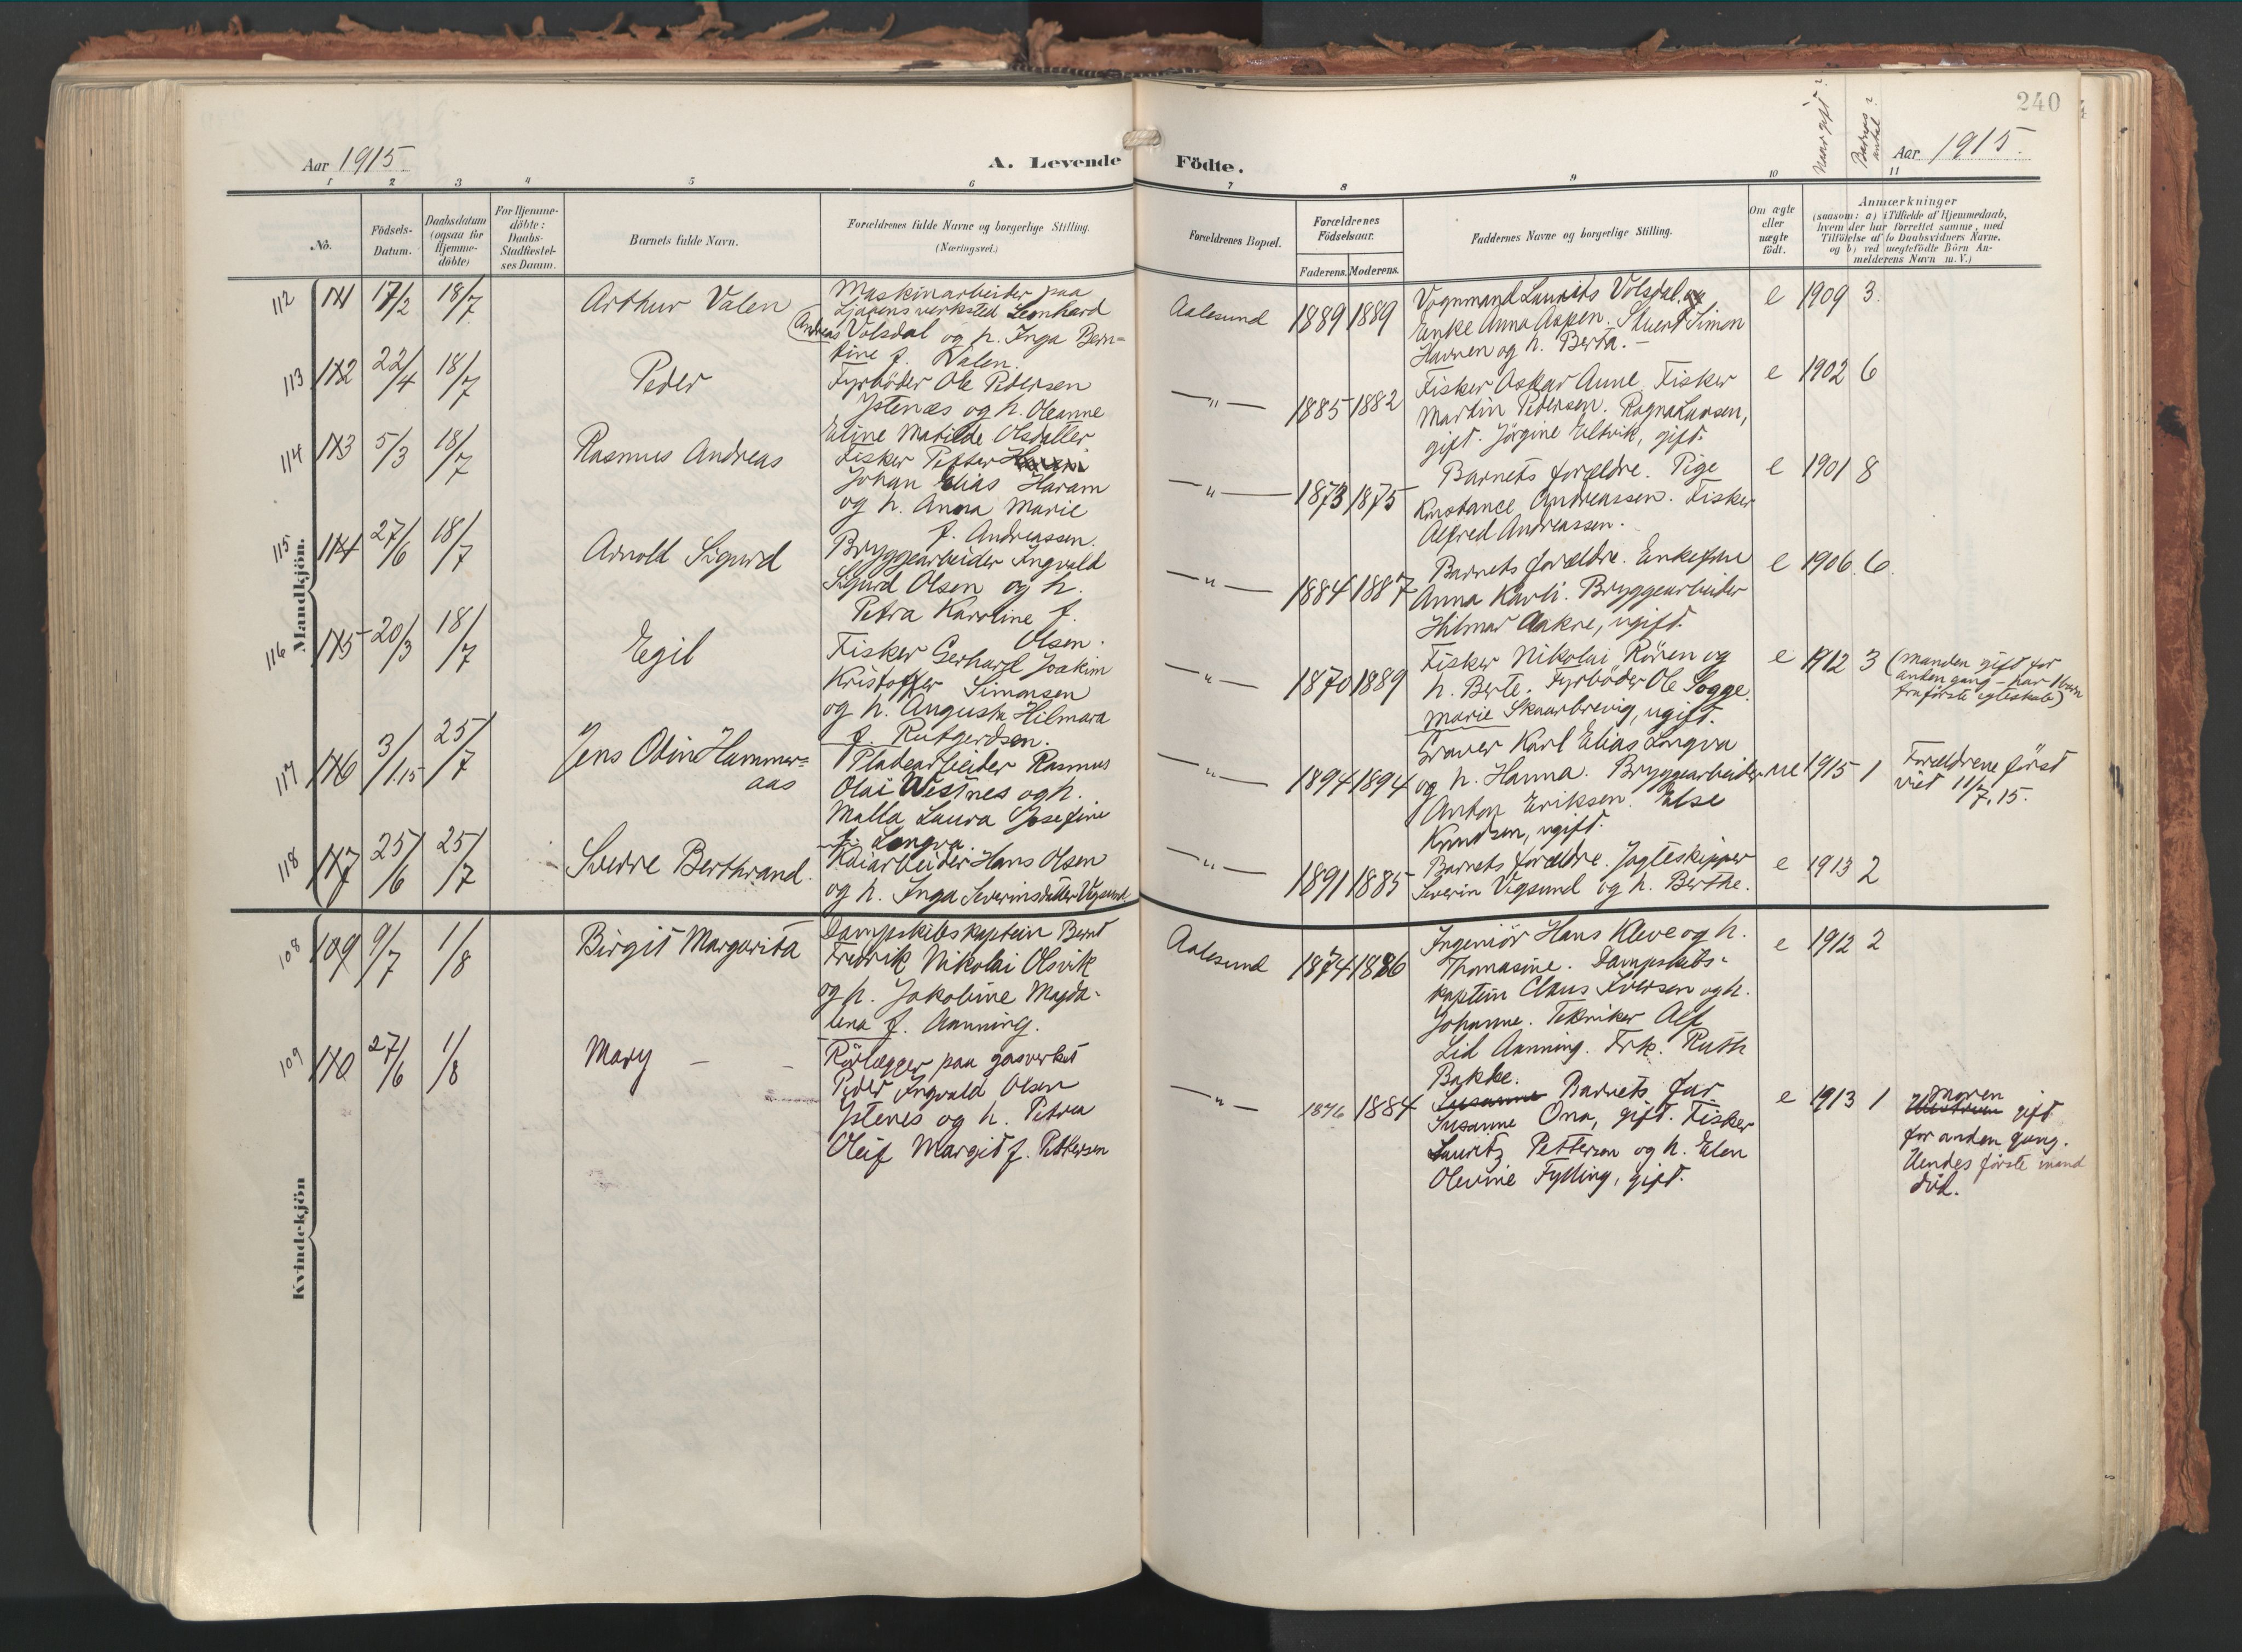 240
Aar 1915
A. Levende
Födte.
Naar gift?
Barnets antal?
Aar 1915.
1 2 3 4 5 6 7 8 9 10 11
No.
Födsels-
Datum.
Daabsdatum
(ogsaa for
Hjemme-
döbte)
For Hjemme-
döbte:
Daabs-
Stadfæstel-
ses Datum.
Barnets fulde Navn.
Forældrenes fulde Navne og borgerlige Stilling.
(Næringsvei.)
Forældrenes Bopæl.
Forældrenes
Födselsaar.
Faderens. Moderens.
Faddernes Navne og borgerlige Stilling.
Om ægte
eller
uægte
födt.
Anmærkninger
(saasom: a) i Tilfælde af Hjemmedaab,
hvem der har forrettet samme, med
Tilföielse af to Daabsvidners Navne,
og b) ved uægtefödte Börn An-
melderens Navn m. V.)
Mandkjön.
112 111 17/2 18/7
Arthur Valen
Maskinarbeider paa
Ljaaens verksted Leonhard
Andreas Volsdal og h. Inga Bern=
tine f. Valen.
Aalesund 1889 1889
Vognmand Laurits Volsdal og
Enke Anna Aspen. Stuert Simon
Havnen og h. Berta. –
e 1909 3.
113 112 22/4 18/7
Peder
Fyrböder Ole Pedersen
Ystenæs og h. Oleanne
Eline Matilde Olsdatter
—"— 1885 1882
Fisker Oskar Anne. Fisker
Martin Pedersen. Ragna Larsen,
gift. Jörgine Eltvik, gift.
e 1902 6
114 113 5/3 18/7
Rasmus Andreas
Fisker Petter
Johan Elias Haram
og h. Anna Marie
f. Andreassen.
—"— 1873 1875
Barnets forældre. Pige
Konstance Andreassen. Fisker
Alfred Andreassen.
e 1901 8
115 114 27/6 18/7
Arnold Sigurd
Bryggearbeider Ingvald
Sigurd Olsen og h.
Petra Karoline f.
Olsen.
—"— 1884 1887
Barnets forældre. Enkefrue
Anna Karli. Bryggearbeider
Hilmar Aakre, ugift.
e 1906. 6.
116 115 20/3 18/7
Egil
Fisker Gerhard Joakim
Kristoffer Simonsen
og h. Augusta Hilmara
f. Rutgerdsen.
—"— 1870 1889
Fisker Nikolai Rören og
h. Berte. Fyrböder Ole Sogge.
Marie Skaarbrevig, ugift.
e 1912 3 (Manden gift for
anden gang – har 1 barn
fra förste egteskab)
117 116 3/1.15 25/7
Jens Odin Hammer=
aas
Pladearbeider Rasmus
Olai Westnes og h.
Malla Laura Josefine
f. Longva.
—"— 1894 1894
Graver Karl Elias Longva
og h. Hanna. Bryggearbeider
Anton Eriksen. Else
Knudsen, ugift.
ue 1915 1 Forældrene först
viet 11/7.15.
118 117 25/6 25/7
Sverre Berthrand.
Kaiarbeider Hans Olsen
og h. Inga Severinsdatter Vegsund
—"— 1891 1885
Barnets forældre. Jagteskipper
Severin Vegsund og h. Berthe.
e 1913 2
Kvindekjön
108 109 9/7 1/8
Birgit Margarita
Dampskibskaptein Bernt
Fredrik Nikolai Olsvik
og h. Jakobine Magda-
lena f. Aanning.
Aalesund 1874 1886
Ingeniör Hans Kleve og h.
Thomasine. Dampskibs-
kaptein Claus Iversen og h.
Johanne. Tekniker Alf
Lid Aanning. Frk. Ruth
Bakke.
e 1912 2
109 110 27/6 1/8
Mary –
Rörlægger paa gasverket
Peder Ingvald Olsen
Ystenes og h. Petra
Oluf Margit f. Pettersen
—"— 1876 1884
Susanne Barnets far.
Susanne Ona, gift. Fisker
Lauritz Petterson og h. Elen
Olevine Fylling, gift.
e 1913 1 Moren
gift
for anden gang.
Hendes förste mand
död.